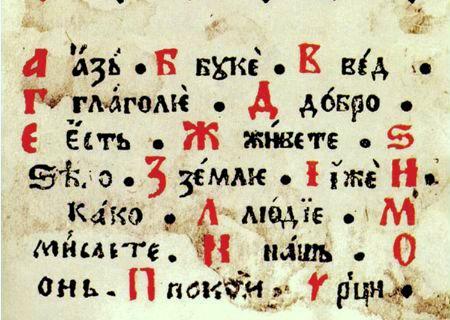 А а҆́зъ • Б бꙋкѐ • В ве́д •
Г глаго́лѥ • Д до́бро •
Е є҆́сть • Ж живе́те • Ѕ
ѕѣ́ло • З зе́млѥ • І ї҆́жѐ • Н
ка́ко • Л лю́дїе • М
ми́слете • Н на́шъ • О
онь • П поко́и • Р рци •